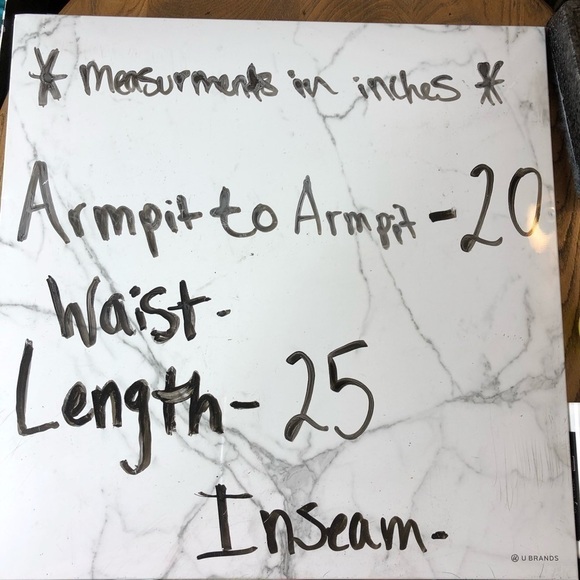 * measurments in inches *
Armpit to Armpit - 20
Waist -
Length - 25
Inseam -
U BRANDS